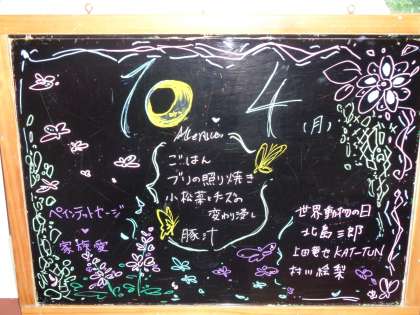 10 4
(月)
Menu
ごはん
ブリの照り焼き
小松菜とチーズの
変わり浸し
豚汁
ペインテッドセージ
家族愛
世界動物の日
北島三郎
上田竜也 KAT-TUN
村川絵梨